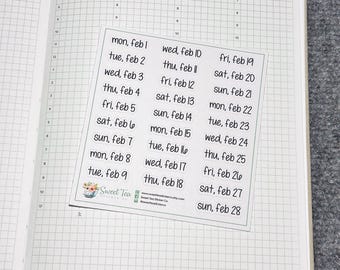 mon, feb 1
tue, feb 2
wed, feb 3
thu, feb 4
fri, feb 5
sat, feb 6
sun, feb 7
mon, feb 8
tue, feb 9
wed, feb 10
thu, feb 11
fri, feb 12
sat, feb 13
sun, feb 14
mon, feb 15
tue, feb 16
wed, feb 17
thu, feb 18
fri, feb 19
sat, feb 20
sun, feb 21
mon, feb 22
tue, feb 23
wed, feb 24
thu, feb 25
fri, feb 26
sat, feb 27
sun, feb 28
Sweet Tea